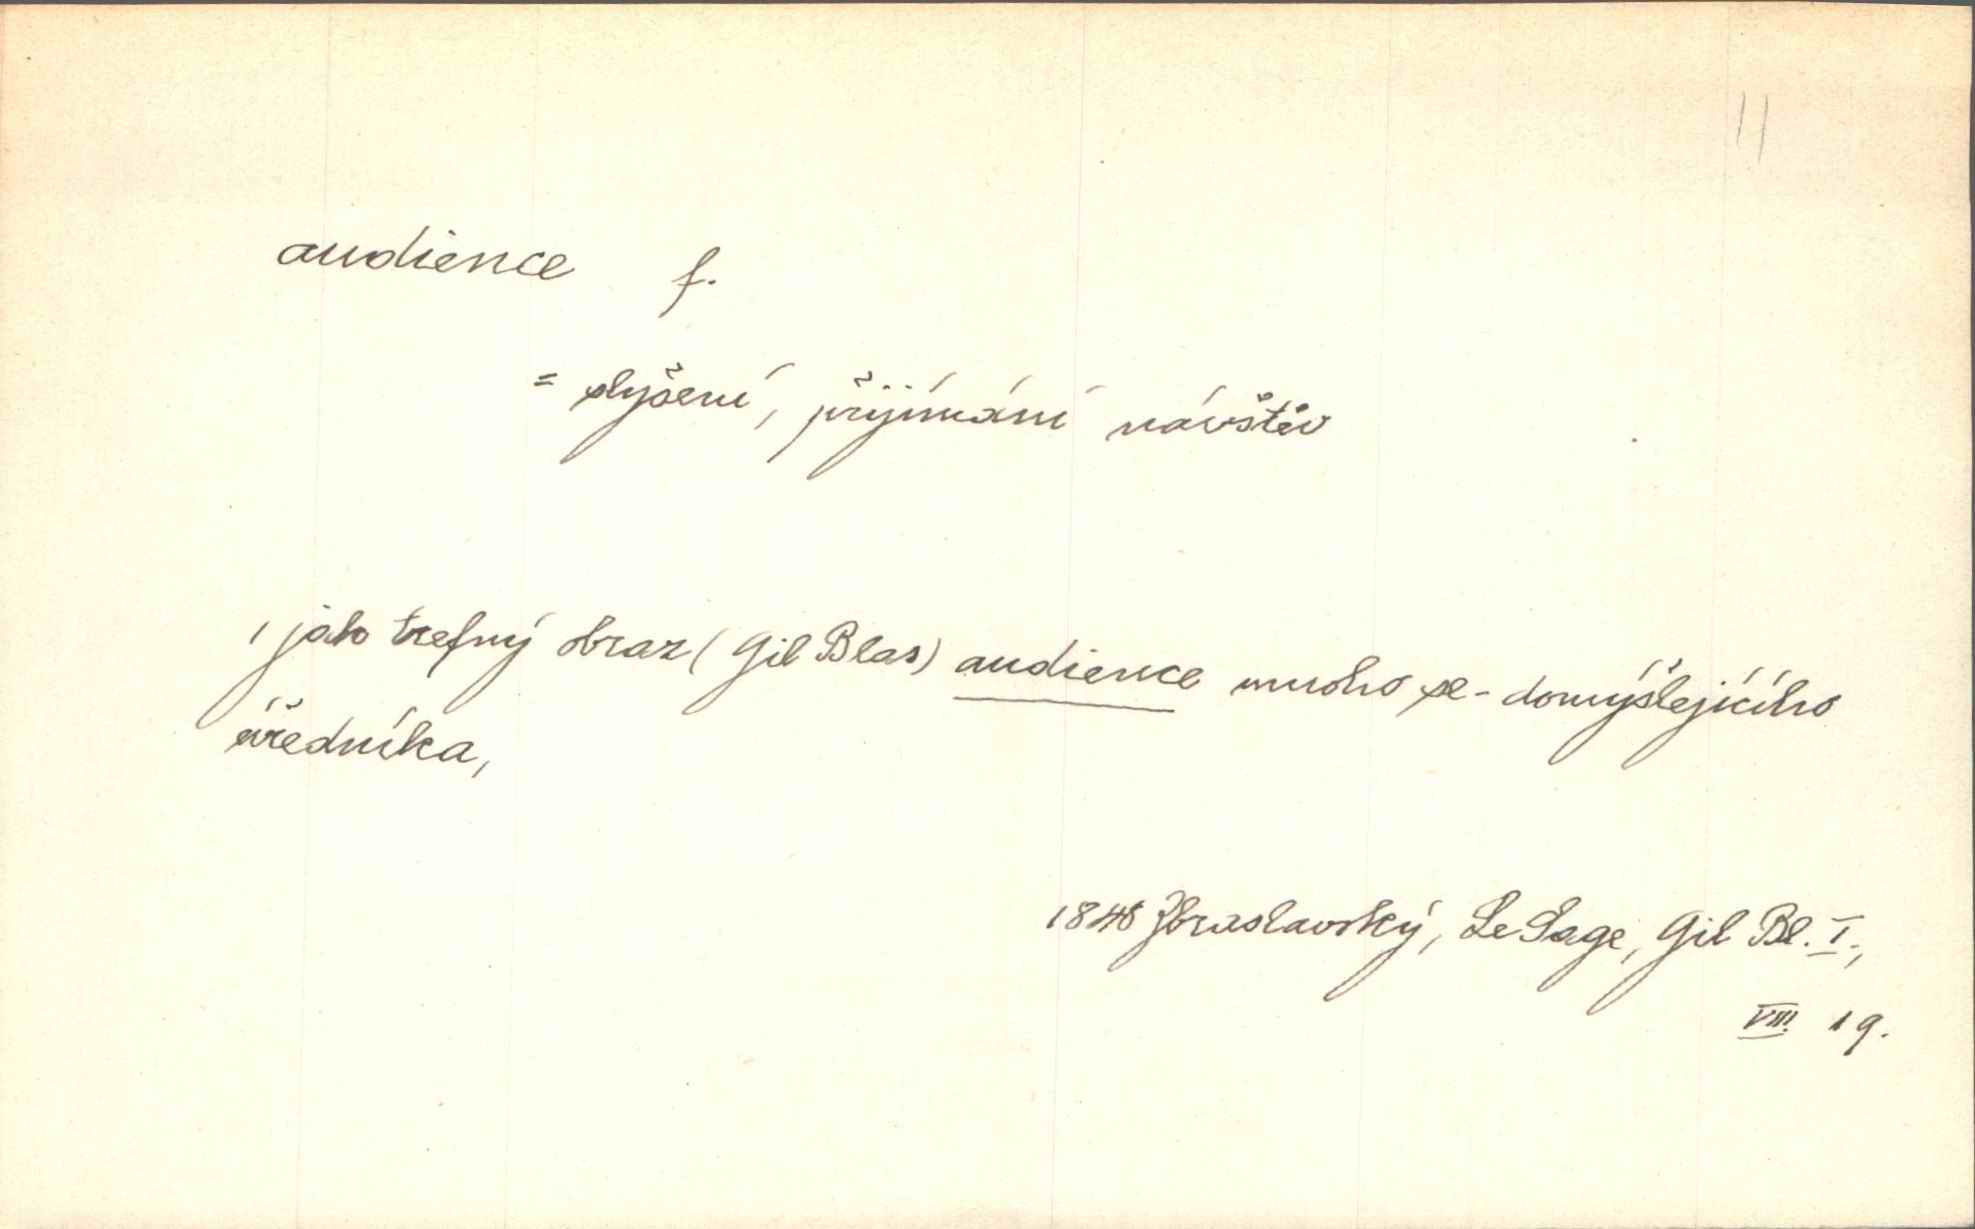 11
audience f.
= slyšení, přijímání návštěv
, jako trefný obraz (Gil Blas) audience mnoho se-domýšlejícího
úředníka,
1848 Zbraslavský, Le Sage, Gil Bl. I.,
VIII. 19.